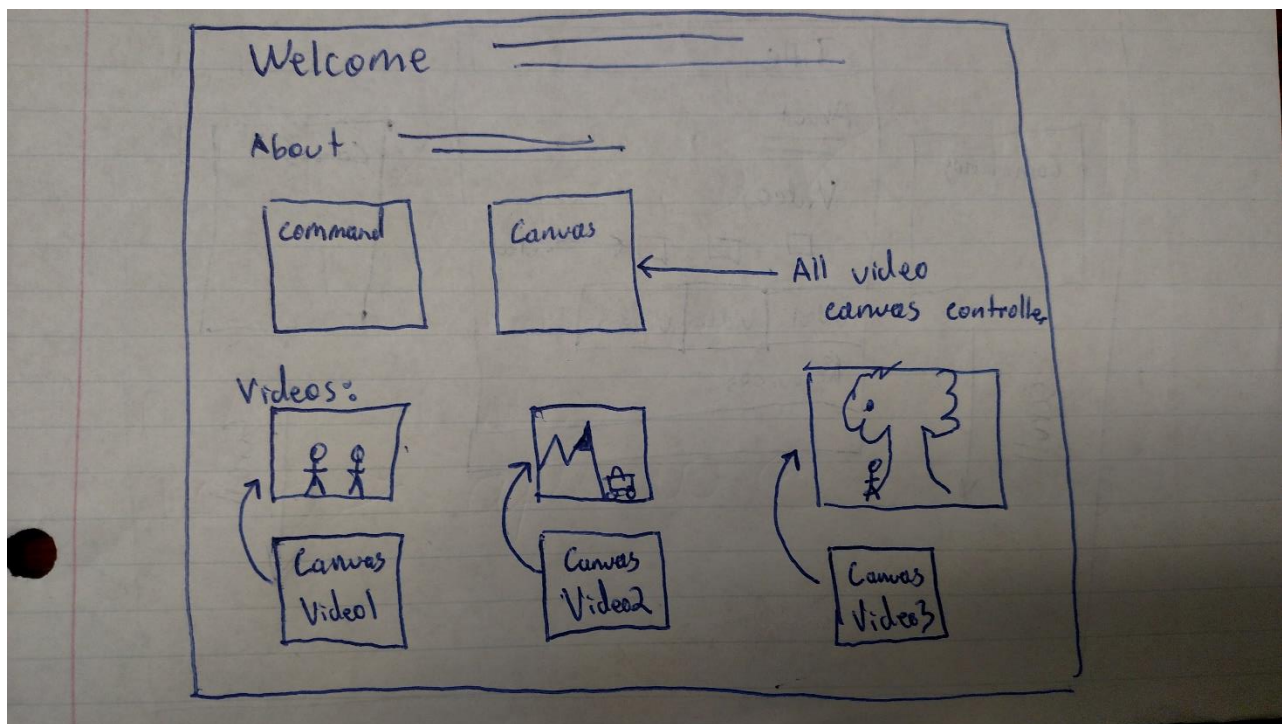 Welcome
About
Command
Canvas
All video
canvas controller
Videos:
Canvas
Video1
Canvas
Video2
Canvas
Video3